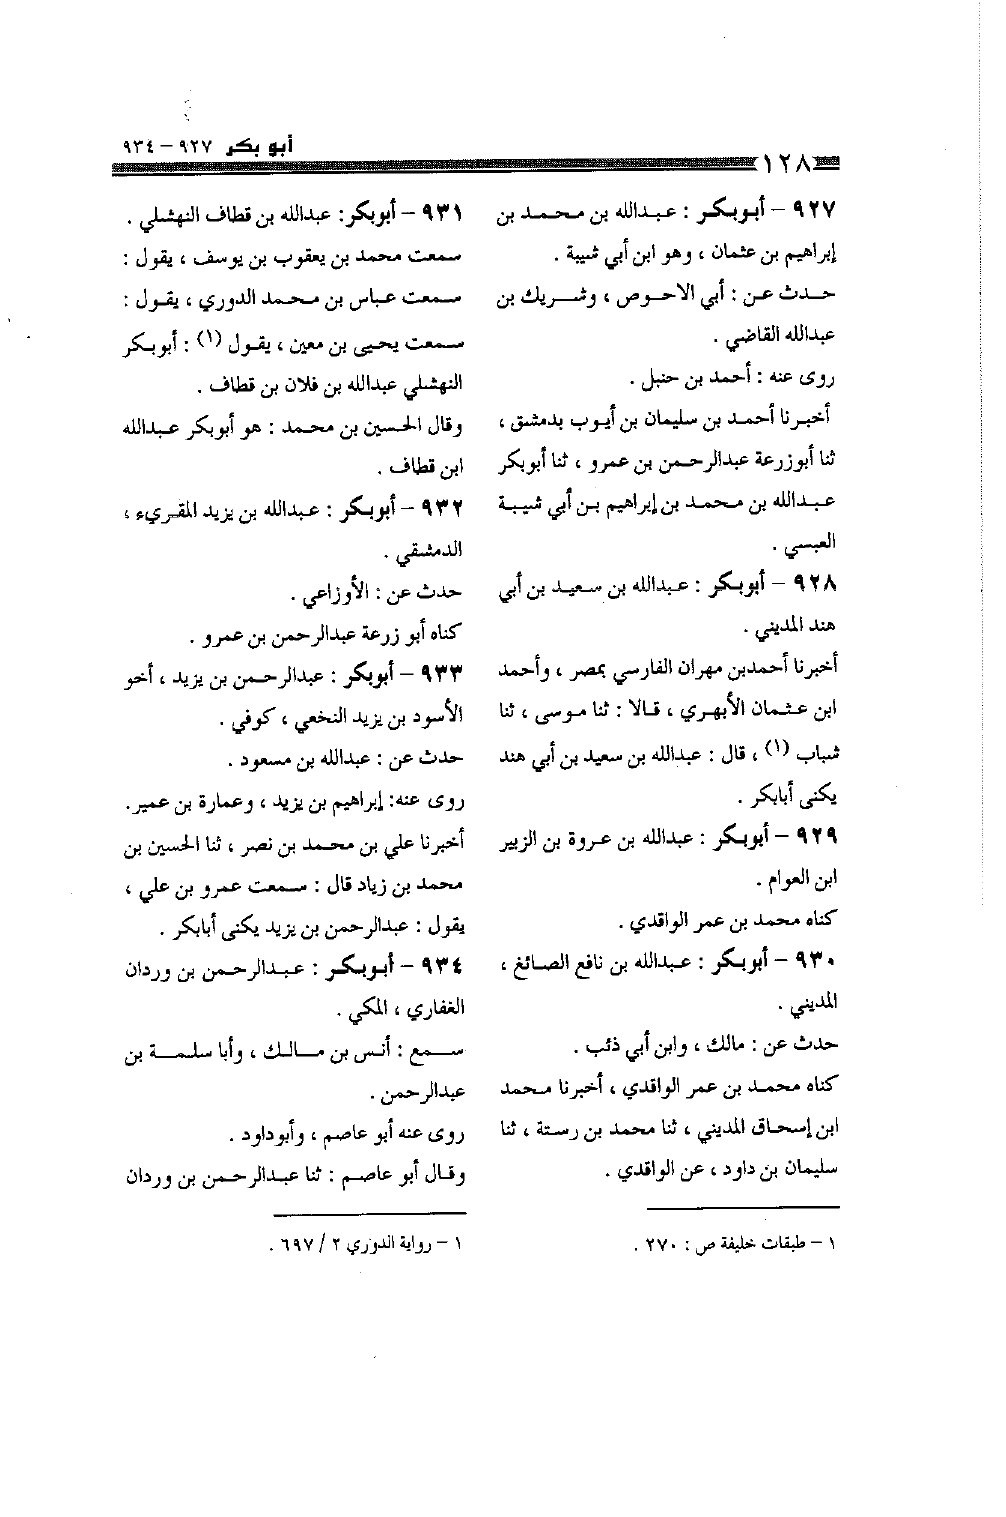 أبو بكر ٩٢٧ – ٩٣٤
١٢٨
٩٢٧ – أبوبكر : عبدالله بن محمد بن
إبراهيم بن عثمان ، وهو ابن أبي شيبة .
حدث عن : أبي الاحوص ، وشريك بن
عبدالله القاضي .
روى عنه : أحمد بن حنبل .
أخبرنا أحمد بن سليمان بن أيوب بدمشق ،
ثنا أبوزرعة عبدالرحمن بن عمرو ، ثنا أبوبكر
عبدالله بن محمد بن إبراهيم بن أبي شيبة
العبسي .
٩٢٨ – أبوبكر : عبدالله بن سعيد بن أبي
هند المديني .
أخبرنا أحمدبن مهران الفارسي بمصر ، وأحمد
ابن عثمان الأبهري ، قالا : ثنا موسى ، ثنا
شباب (١) ، قال : عبدالله بن سعيد بن أبي هند
يكنى أبابكر .
٩٢٩ – أبوبكر : عبدالله بن عروة بن الزبير
ابن العوام .
كناه محمد بن عمر الواقدي .
٩٣٠ – أبوبكر : عبدالله بن نافع الصائغ ،
المديني .
حدث عن : مالك ، وابن أبي ذئب .
كناه محمد بن عمر الواقدي ، أخبرنا محمد
ابن إسحاق المديني ، ثنا محمد بن رستة ، ثنا
سليمان بن داود ، عن الواقدي .
١ – طبقات خليفة ص : ٢٧٠ .
٩٣١ – أبوبكر: عبدالله بن قطاف النهشلي .
سمعت محمد بن يعقوب بن يوسف ، يقول :
سمعت عباس بن محمد الدوري ، يقول :
سمعت يحيى بن معين ، يقول (١) : أبوبكر
النهشلي عبدالله بن فلان بن قطاف .
وقال الحسين بن محمد : هو أبوبكر عبدالله
ابن قطاف .
٩٣٢ – أبوبكر : عبدالله بن يزيد المقريء ،
الدمشقي .
حدث عن : الأوزاعي .
كناه أبو زرعة عبدالرحمن بن عمرو .
٩٣٣ – أبوبكر : عبدالرحمن بن يزيد ، أخو
الأسود بن يزيد النخعي ، كوفي .
حدث عن : عبدالله بن مسعود .
روى عنه: إبراهيم بن يزيد ، وعمارة بن عمير.
أخبرنا علي بن محمد بن نصر ، ثنا الحسين بن
محمد بن زياد قال : سمعت عمرو بن علي ،
يقول : عبدالرحمن بن يزيد يكنى أبابكر .
٩٣٤ – أبوبكر : عبدالرحمن بن وردان
الغفاري ، المكي .
سمع : أنس بن مالك ، وأبا سلمة بن
عبدالرحمن .
روى عنه أبو عاصم ، وأبوداود .
وقال أبو عاصم : ثنا عبدالرحمن بن وردان
١ – رواية الدوري ٢ / ٦٩٧ .